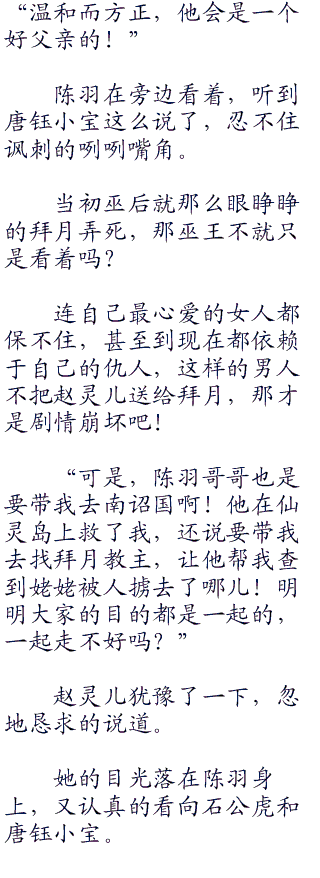 “温和而方正，他会是一个
好父亲的！”
陈羽在旁边看着，听到
唐钰小宝这么说了，忍不住
讽刺的咧咧嘴角。
当初巫后就那么眼睁睁
的拜月弄死，那巫王不就只
是看着吗？
连自己最心爱的女人都
保不住，甚至到现在都依赖
于自己的仇人，这样的男人
不把赵灵儿送给拜月，那才
是剧情崩坏吧！
“可是，陈羽哥哥也是
要带我去南诏国啊！他在仙
灵岛上救了我，还说要带我
去找拜月教主，让他帮我查
到姥姥被人掳去了哪儿！明
明大家的目的都是一起的，
一起走不好吗？”
赵灵儿犹豫了一下，忽
地恳求的说道。
她的目光落在陈羽身
上，又认真的看向石公虎和
唐钰小宝。